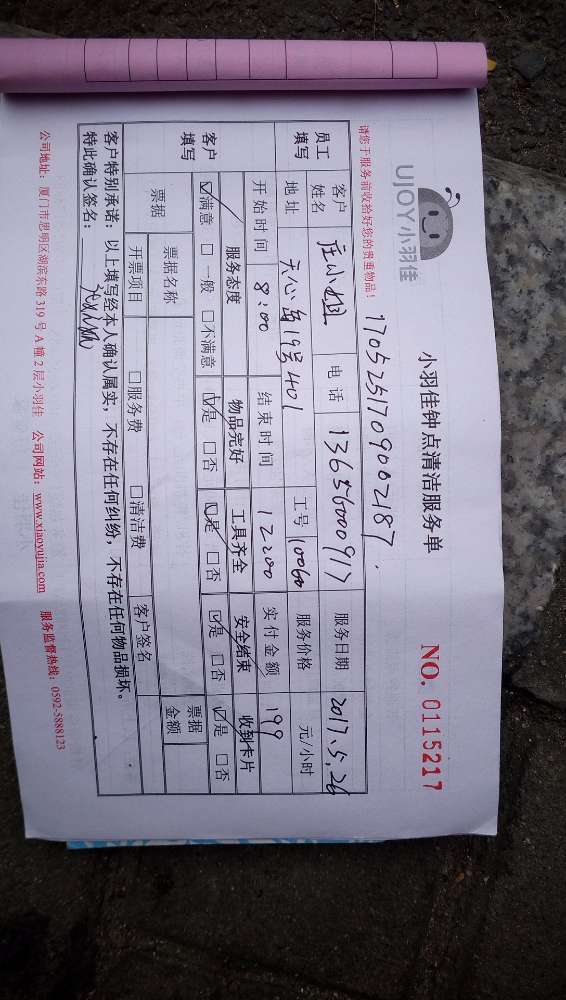 UJOY小羽佳
小羽佳钟点清洁服务单
NO. 0115217
请您于服务前收拾好您的贵重物品!
1705251709002187.
员工填写
客户姓名 庄小姐 电话 13656000917 服务日期 2017.5.26
地址 天心岛19号401 工号 10060 服务价格 元/小时
开始时间 8:00 结束时间 12:00 实付金额 199
客户填写
服务态度 物品完好 工具齐全 安全结束 收到卡片
☑满意 □一般 □不满意 ☑是 □否 ☑是 □否 ☑是 □否 ☑是 □否
票据 票据名称 票据金额
开票项目 □服务费 □清洁费 客户签名
客户特别承诺:以上填写经本人确认属实,不存在任何纠纷,不存在任何物品损坏。
特此确认签名:
公司地址:厦门市思明区湖滨东路319号A幢2层小羽佳 公司网站:www.xiaoyujia.com 服务监督热线:0592-5888123